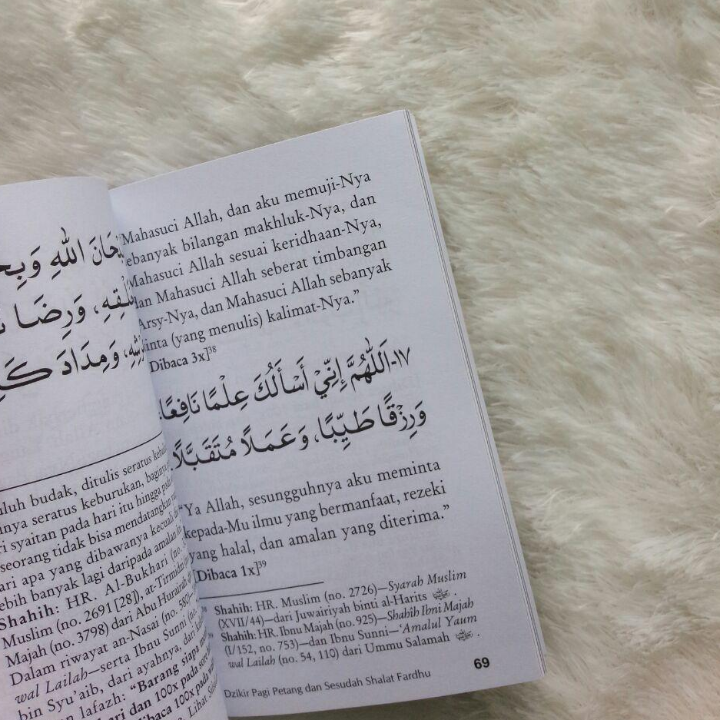 اللهِ
وَرِضَا
وَمِدَادَ
luluh budak, ditulis seratus
seratus keburukan,
syaitan pada hari itu hingga
seorang tidak bisa mendatangkan
apa yang dibawanya kecuali
lebih banyak lagi daripada amalan
Shahih: HR. Al-Bukhari (no.
Muslim (no. 2691 [28]), at-Tirmidzi
Majah (no. 3798) dari Abu Hurairah
Dalam riwayat an-Nasai (no. 580)—
wal Lailah—serta Ibnu Sunni (no.
bin Syu'aib, dari ayahnya, dari
lafazh: "Barang siapa
hari dan 100x pada sore
dibaca 100x pada
Lihat
Mahasuci Allah, dan aku memuji-Nya
sebanyak bilangan makhluk-Nya, dan
Mahasuci Allah sesuai keridhaan-Nya,
dan Mahasuci Allah seberat timbangan
'Arsy-Nya, dan Mahasuci Allah sebanyak
tinta (yang menulis) kalimat-Nya."
[Dibaca 3x]³⁸
١٧-اَللّٰهُمَّ إِنِّيْ أَسْأَلُكَ عِلْمًا نَافِعًا،
وَرِزْقًا طَيِّبًا، وَعَمَلًا مُتَقَبَّلًا
"Ya Allah, sesungguhnya aku meminta
kepada-Mu ilmu yang bermanfaat, rezeki
yang halal, dan amalan yang diterima."
[Dibaca 1x]³⁹
Shahih: HR. Muslim (no. 2726)—Syarah Muslim
(XVII/44)—dari Juwairiyah binti al-Harits .
Shahih: HR. Ibnu Majah (no. 925)—Shahih Ibni Majah
(I/152, no. 753)—dan Ibnu Sunni—'Amalul Yaum
wal Lailah (no. 54, 110) dari Ummu Salamah .
Dzikir Pagi Petang dan Sesudah Shalat Fardhu 69